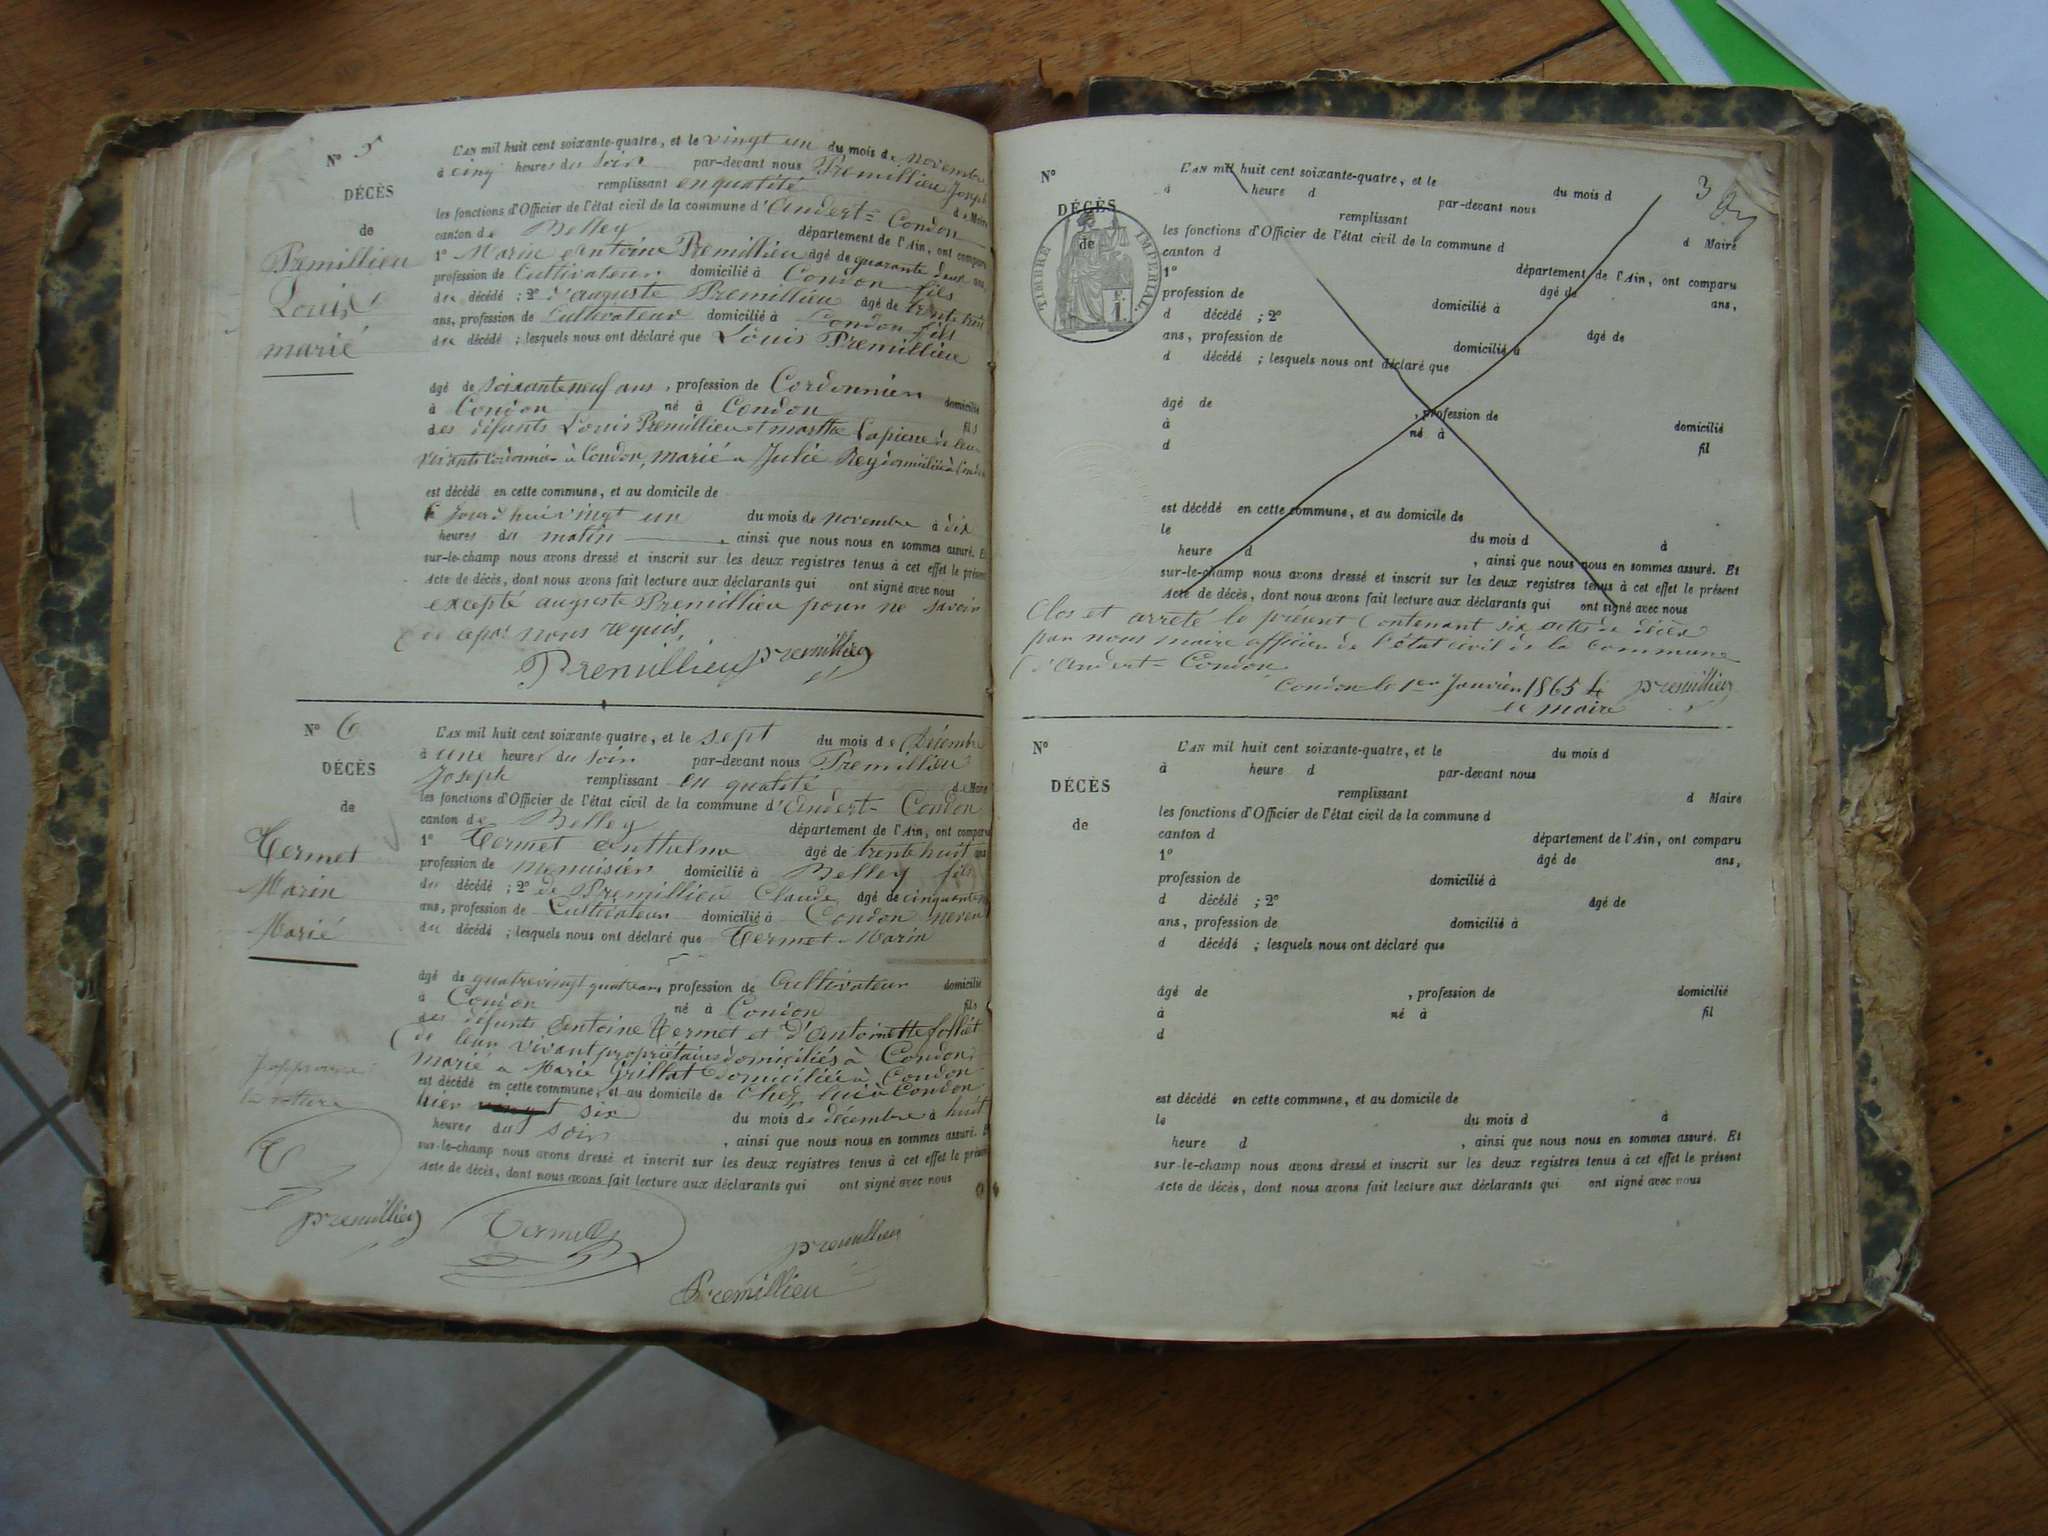 N° 5
DÉCÈS
de
Premillieu
Louis
marié
L'AN mil huit cent soixante-quatre, et le vingt un du mois de novembre
à cinq heures du soir par-devant nous Premillieu Joseph
remplissant en qualité de Maire
les fonctions d'Officier de l'état civil de la commune d'Andert-Condon
canton de Belley département de l'Ain, ont comparu
1° Marin Antoine Premillieu âgé de quarante deux ans,
profession de Cultivateur domicilié à Condon fils
du décédé ; 2° d'auguste Premillieu âgé de trente trois
ans, profession de Cultivateur domicilié à Condon fils
du décédé ; lesquels nous ont déclaré que Louis Premillieu
âgé de soixante neuf ans, profession de Cordonnier domicilié
à Condon né à Condon fils
des défunts Louis Premillieu et marthe Lapierre de leur
vivants à Condon, marié a Julie Rey domiciliée à Condon
est décédé en cette commune, et au domicile de
jourd'hui vingt un du mois de novembre à dix
heures du matin, ainsi que nous nous en sommes assuré. Et
sur-le-champ nous avons dressé et inscrit sur les deux registres tenus à cet effet le présent
Acte de décès, dont nous avons fait lecture aux déclarants qui ont signé avec nous
excepté auguste Premillieu pour ne savoir
de ce par nous requis,
Premillieu premillieu
N° 6
DÉCÈS
de
Termet
Marin
Marié
L'AN mil huit cent soixante-quatre, et le sept du mois de Décembre
à une heures du soir par-devant nous Premillieu
Joseph remplissant en qualité de Maire
les fonctions d'Officier de l'état civil de la commune d'Andert-Condon
canton de Belley département de l'Ain, ont comparu
1° Termet Anthelme âgé de trente huit ans
profession de menuisier domicilié à Belley fils
du décédé ; 2° de Premillieu Claude âgé de cinquante
ans, profession de Cultivateur domicilié à Condon neveu
du décédé ; lesquels nous ont déclaré que Termet Marin
âgé de quatrevingt quatre ans, profession de Cultivateur domicilié
à Condon né à Condon fils
des défunts Antoine Termet et d'Antoinette folliet
de leur vivant propriétaires domiciliés à Condon
marié a Marie Grillat domiciliée à Condon
est décédé en cette commune, et au domicile de chez lui à Condon
hier six du mois de décembre à huit
heures du soir, ainsi que nous nous en sommes assuré. Et
sur-le-champ nous avons dressé et inscrit sur les deux registres tenus à cet effet le présent
Acte de décès, dont nous avons fait lecture aux déclarants qui ont signé avec nous
J'approuve
la rature
premillieu
premillieu
Premillieu
N°
DÉCÈS
de
TIMBRE IMPÉRIAL
L'AN mil huit cent soixante-quatre, et le du mois d
à heure d par-devant nous
remplissant d Maire
les fonctions d'Officier de l'état civil de la commune d
canton d département de l'Ain, ont comparu
1° âgé de ans,
profession de domicilié à
d décédé ; 2° âgé de
ans, profession de domicilié à
d décédé ; lesquels nous ont déclaré que
âgé de , profession de domicilié
à né à fil
d
est décédé en cette commune, et au domicile de
le du mois d à
heure d , ainsi que nous nous en sommes assuré. Et
sur-le-champ nous avons dressé et inscrit sur les deux registres tenus à cet effet le présent
Acte de décès, dont nous avons fait lecture aux déclarants qui ont signé avec nous
Clos et arreté le présent Contenant six actes de décès
par nous maire officier de l'état civil de la commune
d'Andert-Condon
Condon le 1er Janvier 1865 premillieu
le maire
N°
DÉCÈS
de
L'AN mil huit cent soixante-quatre, et le du mois d
à heure d par-devant nous
remplissant d Maire
les fonctions d'Officier de l'état civil de la commune d
canton d département de l'Ain, ont comparu
1° âgé de ans,
profession de domicilié à
d décédé ; 2° âgé de
ans, profession de domicilié à
d décédé ; lesquels nous ont déclaré que
âgé de , profession de domicilié
à né à fil
d
est décédé en cette commune, et au domicile de
le du mois d à
heure d , ainsi que nous nous en sommes assuré. Et
sur-le-champ nous avons dressé et inscrit sur les deux registres tenus à cet effet le présent
Acte de décès, dont nous avons fait lecture aux déclarants qui ont signé avec nous